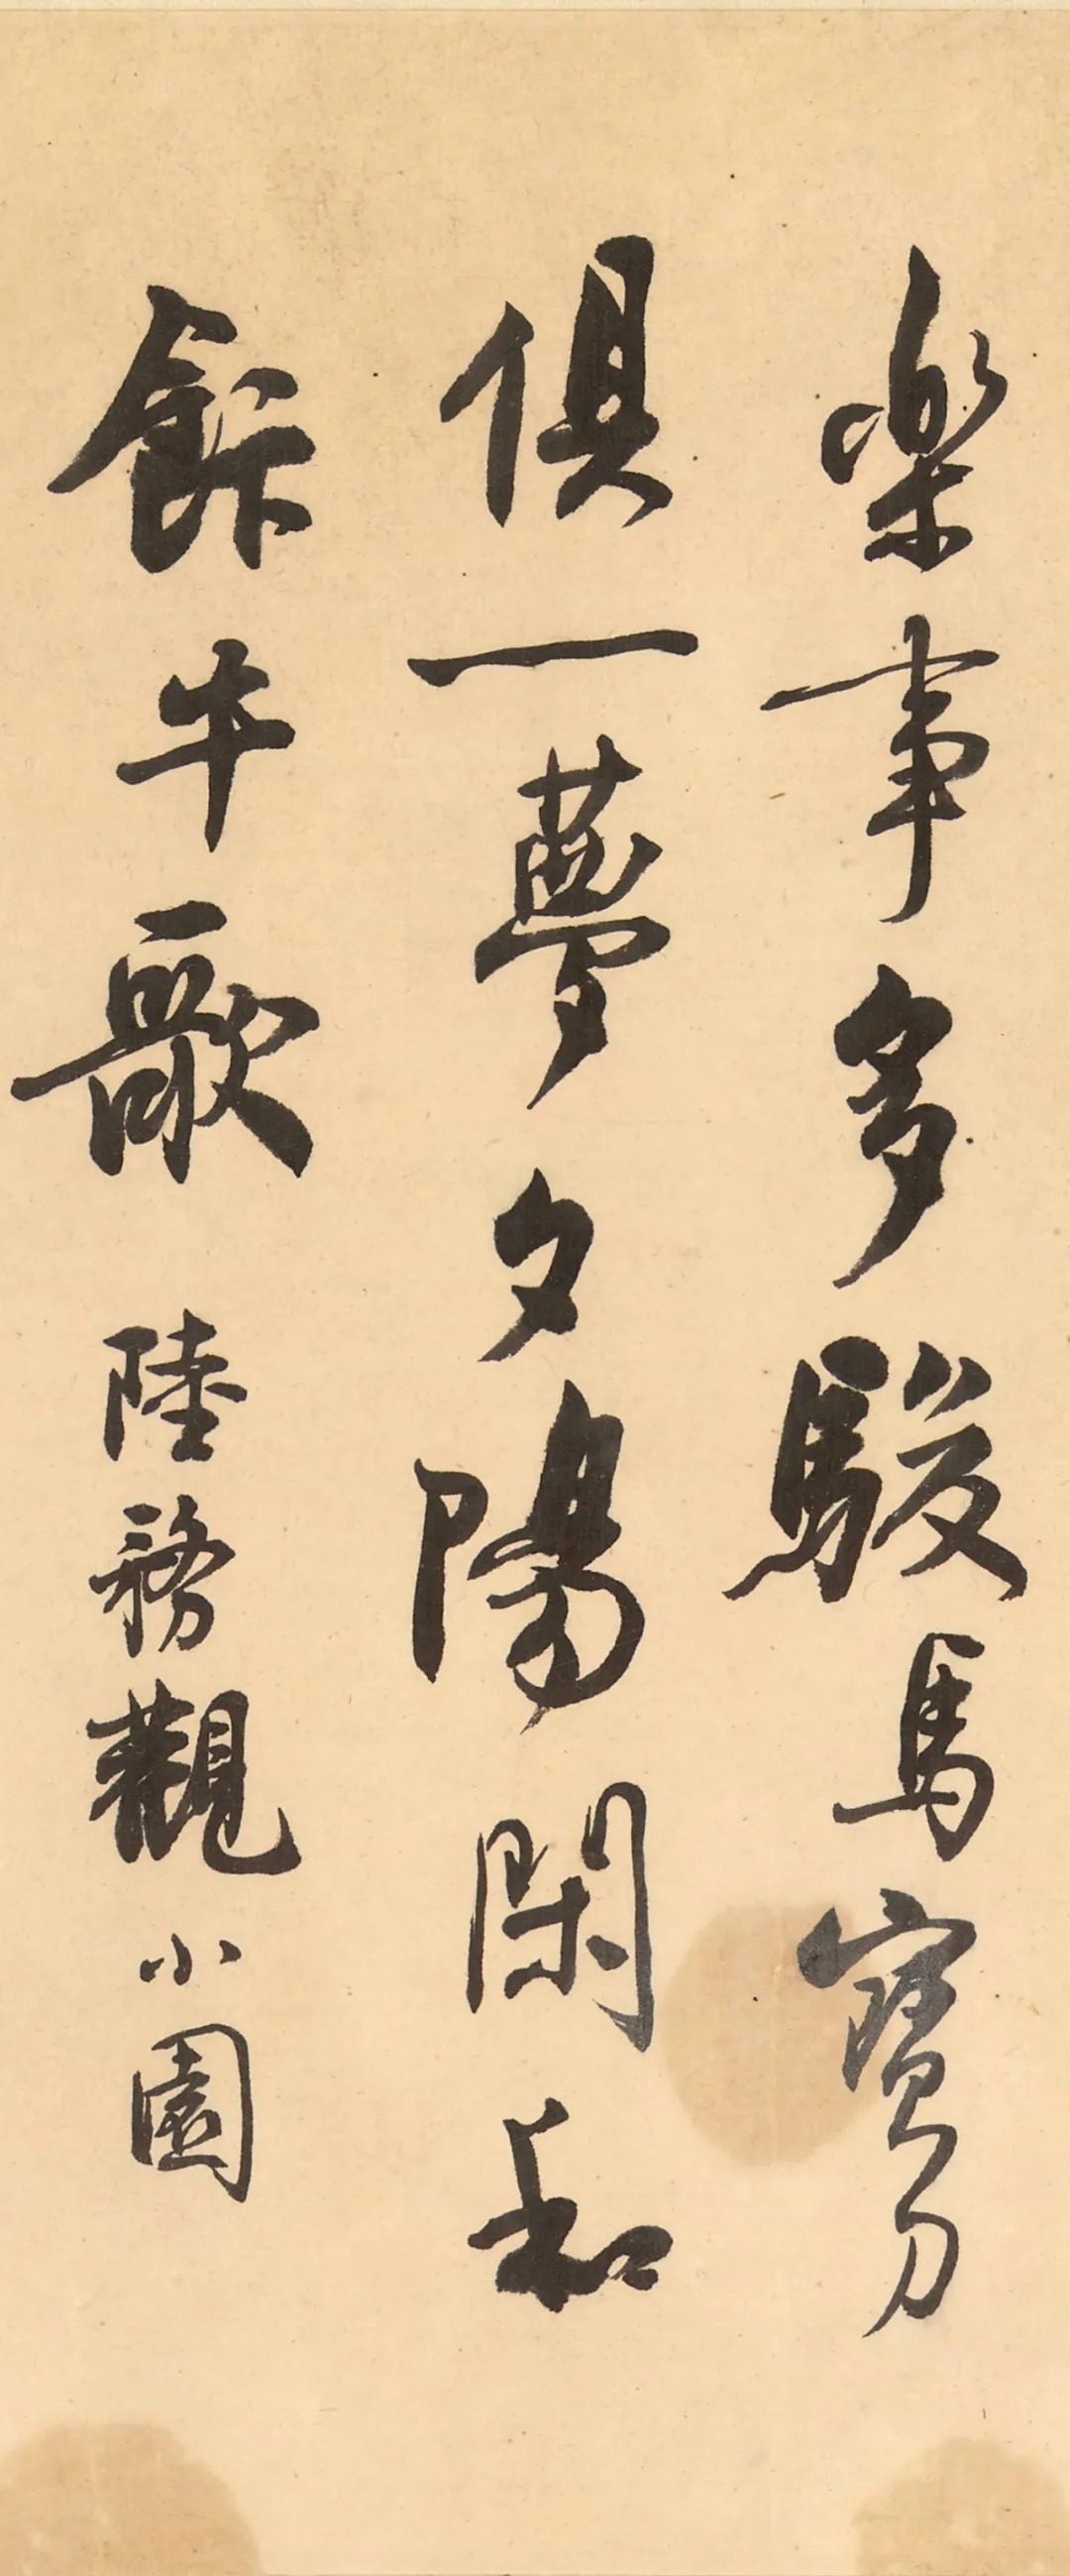 樂事多駿馬寶刀
俱一夢夕陽閑和
飯牛歌 陸務觀小園